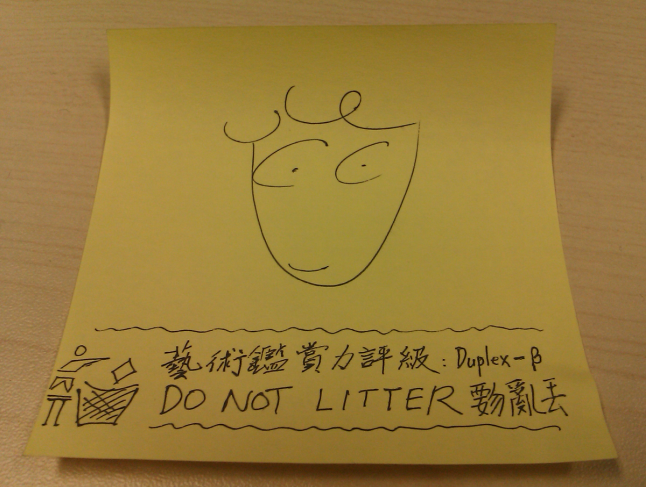 藝術鑑賞力評級:Duplex-β
DO NOT LITTER 覅亂丟